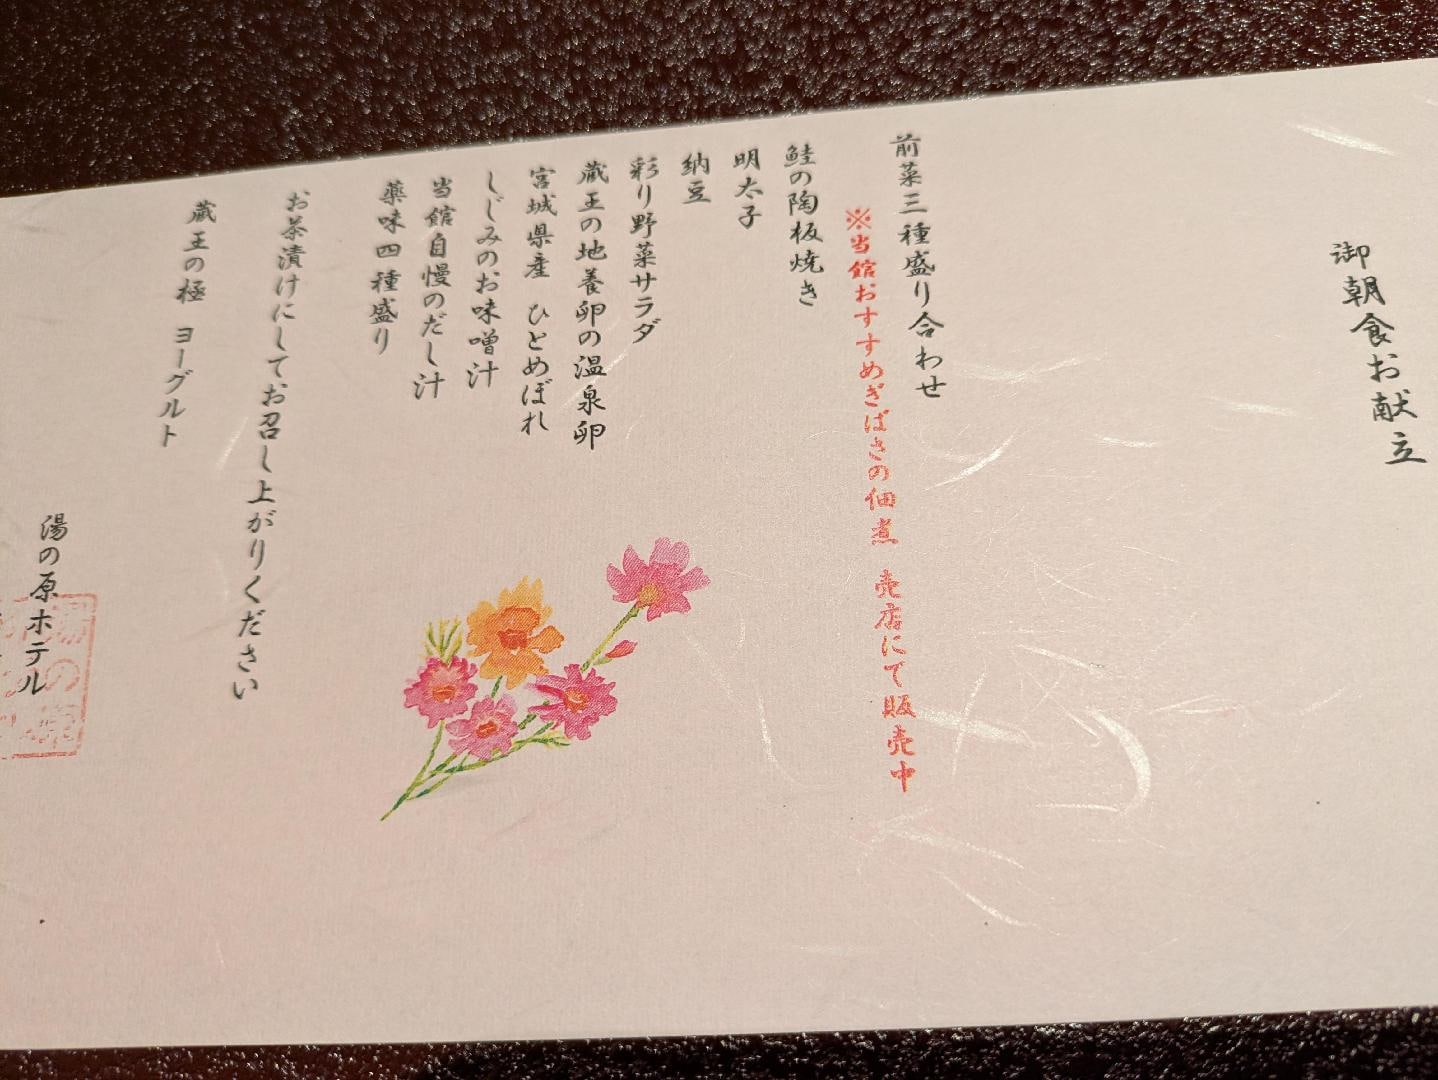 御朝食お献立
前菜三種盛り合わせ
※当館おすすめぎばさの佃煮　売店にて販売中
鮭の陶板焼き
明太子
納豆
彩り野菜サラダ
蔵王の地養卵の温泉卵
宮城県産　ひとめぼれ
しじみのお味噌汁
当館自慢のだし汁
薬味四種盛り
お茶漬けにしてお召し上がりください
蔵王の極　ヨーグルト
湯の原ホテル